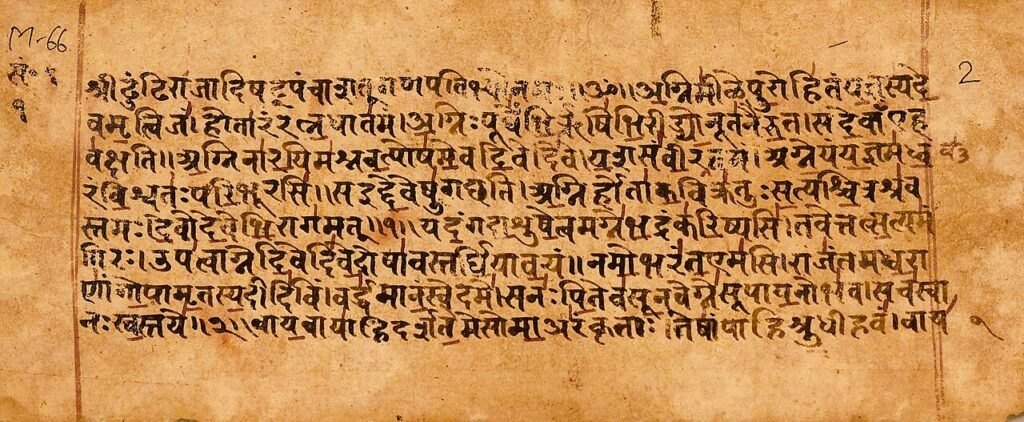 M-66
सं॰ १
१
2
श्रीढुंढिराजादिषट्पंचा गणपति ॥ॐ॥ अग्निमीळेपुरोहितंयज्ञस्यदे
वमृत्विजं।होतारंरत्नधातमं।अग्निःपूर्वेभिर्ऋषिभिरीड्योनूतनैरुत।सदेवाँएह
वक्षति॥अग्निनारयिमश्नवत्पोषमेवदिवेदिवे।यशसंवीरवत्तमं।अग्नेयंयज्ञमध्व
रंविश्वतःपरिभूरसि॥सइद्देवेषुगच्छति।अग्निर्होताकविक्रतुःसत्यश्चित्रश्रव
स्तमः।देवोदेवेभिरागमत्॥१॥यदंगदाशुषेत्वमग्नेभद्रंकरिष्यसि।तवेत्तत्सत्यमं
गिरः।उपत्वाग्नेदिवेदिवेदोषावस्तर्धियावयं॥नमोभरंतएमसि।राजंतमध्वरा
णांगोपामृतस्यदीदिवि।वर्द्धमानंस्वेदमे।सनःपितेवसूनवेग्नेसूपायनोभव।सचस्वा
नःस्वस्तये॥२॥वायवायाहिदर्शतेमेसोमाअरंकृताः।तेषांपाहिश्रुधीहवं।वाय
१